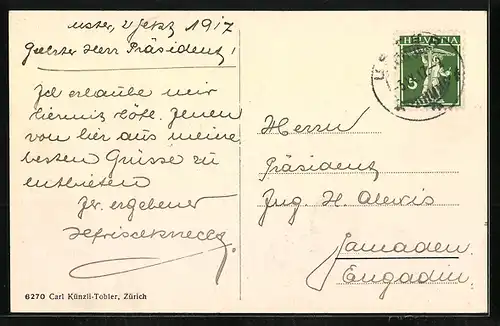 Uster, 2 Sept 1917
Geehrter Herr Präsident!
Ich erlaube mir
hiermit höfl. Ihnen
von hier aus meine
besten Grüsse zu
entbieten
Ihr ergebener
HELVETIA
5
Herrn
Präsident
Ing. H. Alexis
Samaden
Engadin
6270 Carl Künzli-Tobler, Zürich